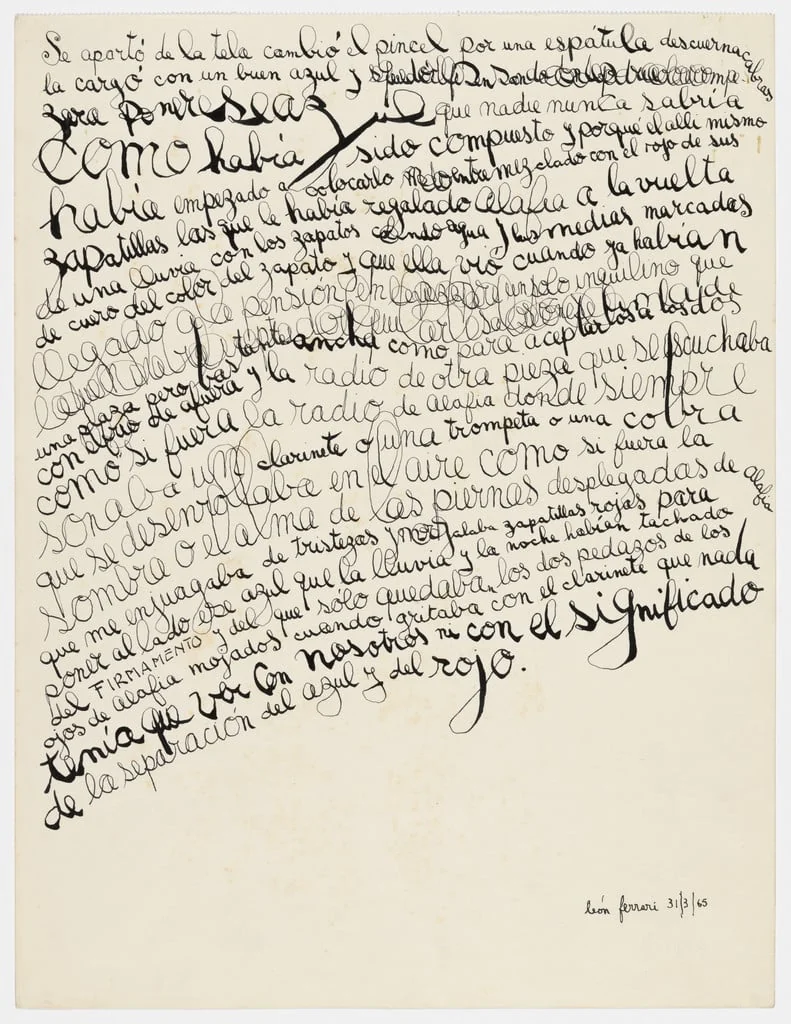 Se apartó de la tela cambió el pincel por una espátula descuernacabras
la cargó con un buen azul y
zara poner ese azul que nadie nunca sabría
como había sido compuesto y porqué el allí mismo
había empezado a colocarlo mezclado con el rojo de sus
zapatillas las que le había regalado alafia a la vuelta
de una lluvia con los zapatos agua y las medias marcadas
de cuero del color del zapato y que ella vió cuando ya habían
llegado a la pensión en un solo inquilino que
una plaza pero bastante ancha como para aceptarlos a los dos
con frío de afuera y la radio de otra pieza que se escuchaba
como si fuera la radio de alafia donde siempre
sonaba un clarinete o una trompeta o una cobra
que se desenrollaba en el aire como si fuera la
sombra o el alma de las piernas desplegadas de alafia
que me enjuagaba de tristezas y me regalaba zapatillas rojas para
poner al lado ese azul que la lluvia y la noche habían tachado
del FIRMAMENTO y del que sólo quedaban los dos pedazos de los
ojos de alafia mojados cuando gritaba con el clarinete que nada
tenía que ver con nosotros ni con el significado
de la separación del azul y del rojo.
león ferrari 31/3/65